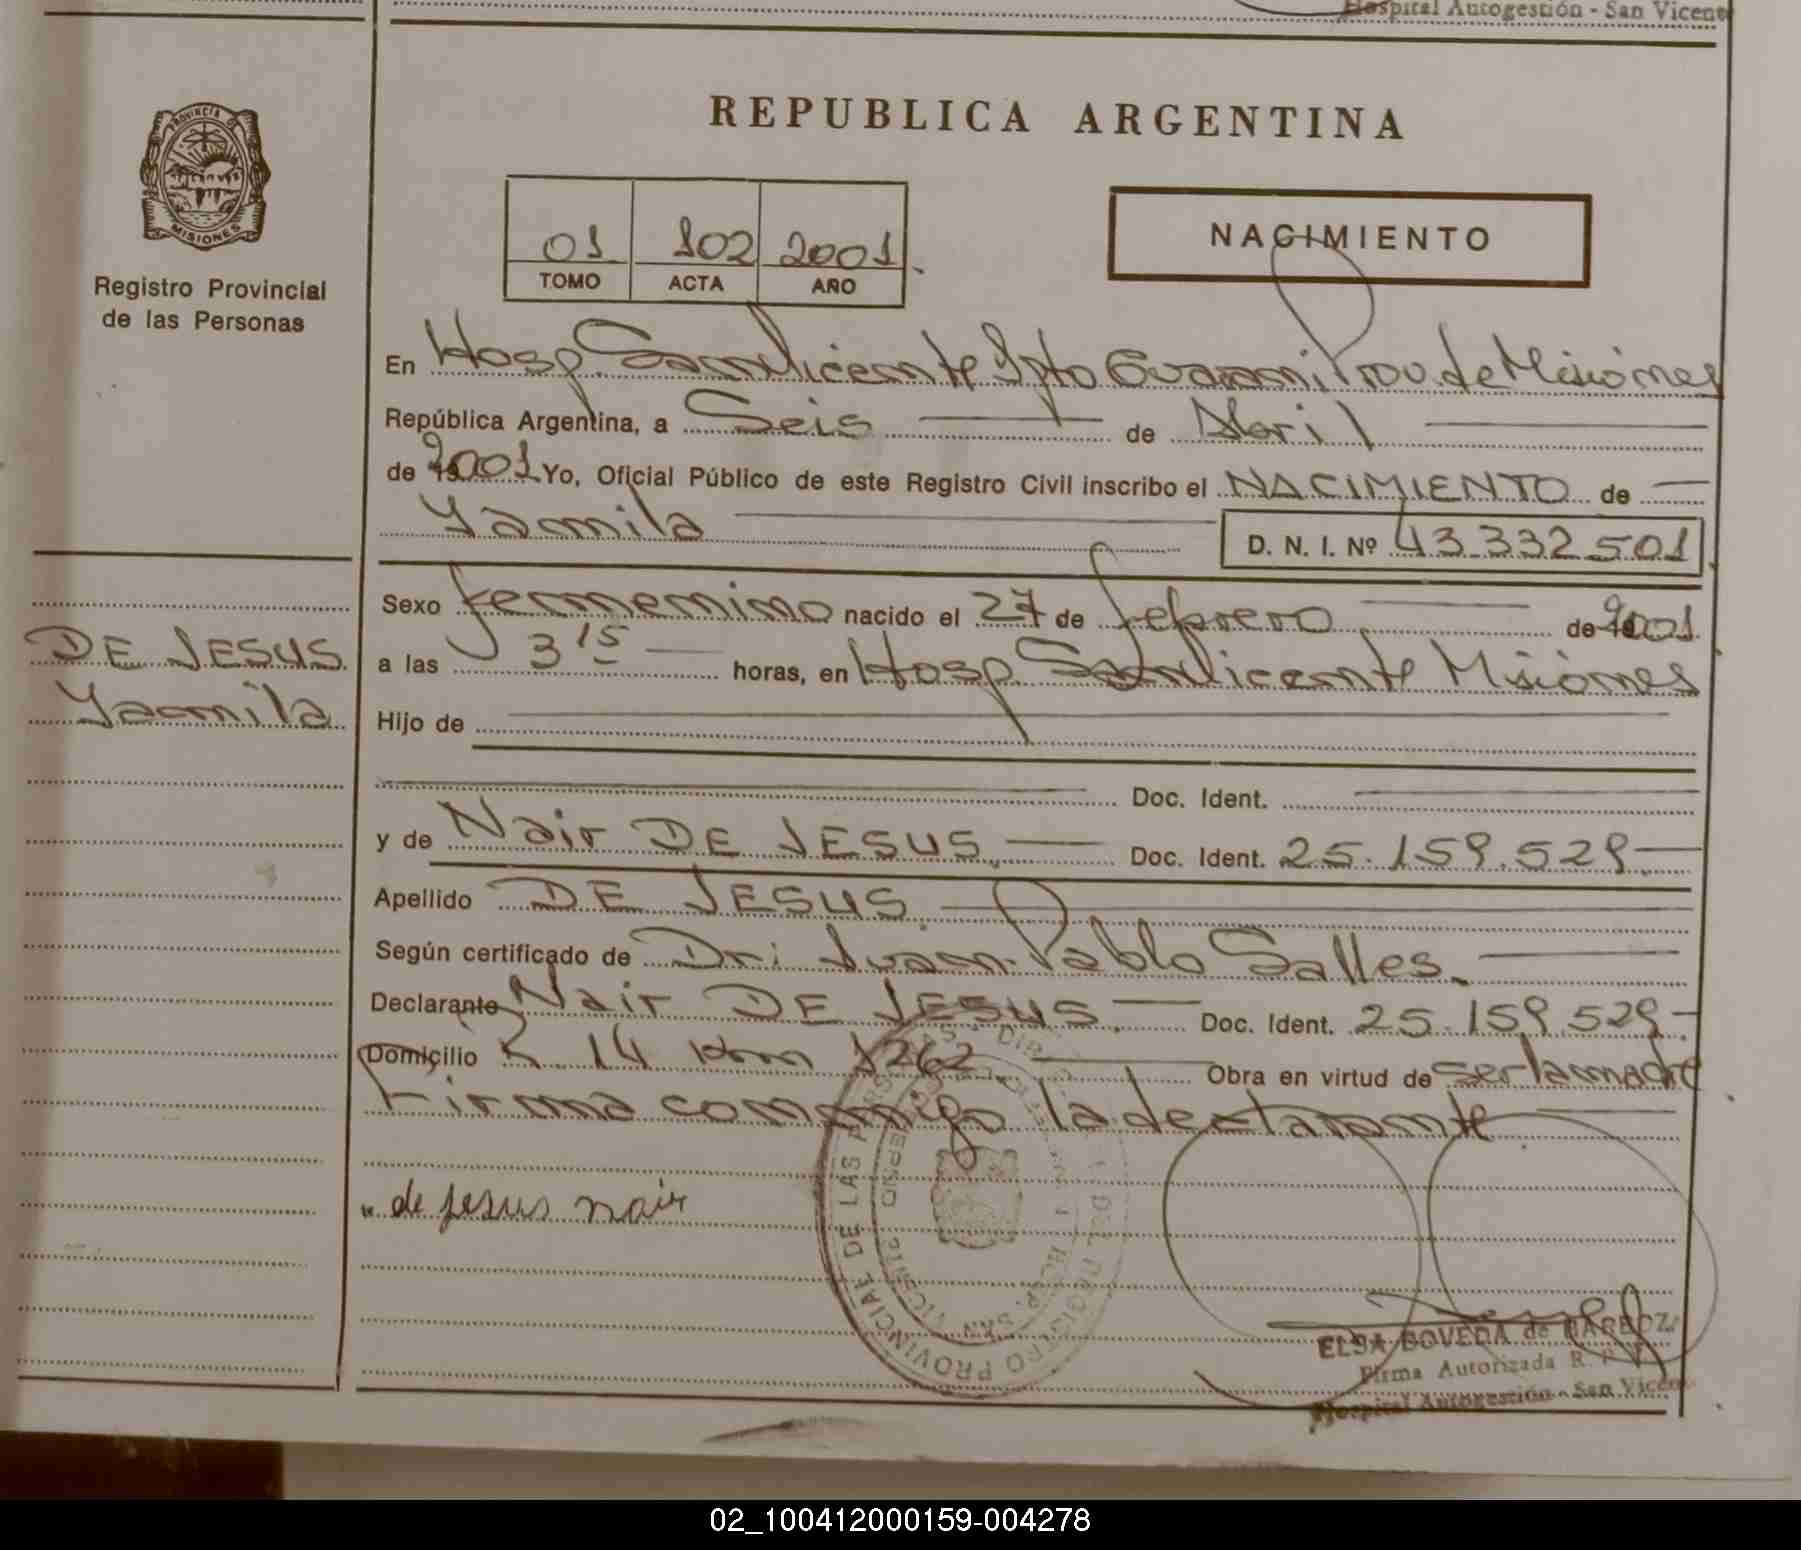 Hospital Autogestión - San Vicente
PROVINCIA DE
MISIONES
Registro Provincial
de las Personas
REPUBLICA ARGENTINA
01 102 2001
TOMO ACTA AÑO
NACIMIENTO
En Hosp. San Vicente Dpto Guarani Prov. de Misiones
República Argentina, a Seis de Abril
de 2001 Yo, Oficial Público de este Registro Civil inscribo el NACIMIENTO de
Yamila D. N. I. Nº 43.332.501
DE JESUS
Yamila
Sexo femenino nacido el 27 de febrero de 2001
a las 3 15 horas, en Hosp. San Vicente Misiones
Hijo de
Doc. Ident.
y de Nair DE JESUS. Doc. Ident. 25.159.529
Apellido DE JESUS
Según certificado de Dr: Juan Pablo Salles.
Declarante Nair DE JESUS. Doc. Ident. 25.159.529
Domicilio R. 14 Km 1262 Obra en virtud de ser la madre
Firma conmigo la declarante
" de jesus nair
REGISTRO PROVINCIAL DE LAS PERSONAS
HOSP. SAN VICENTE
ELSA BOVEDA de BARBOZA
Firma Autorizada R. P.
Hospital Autogestión - San Vicente
02_100412000159-004278